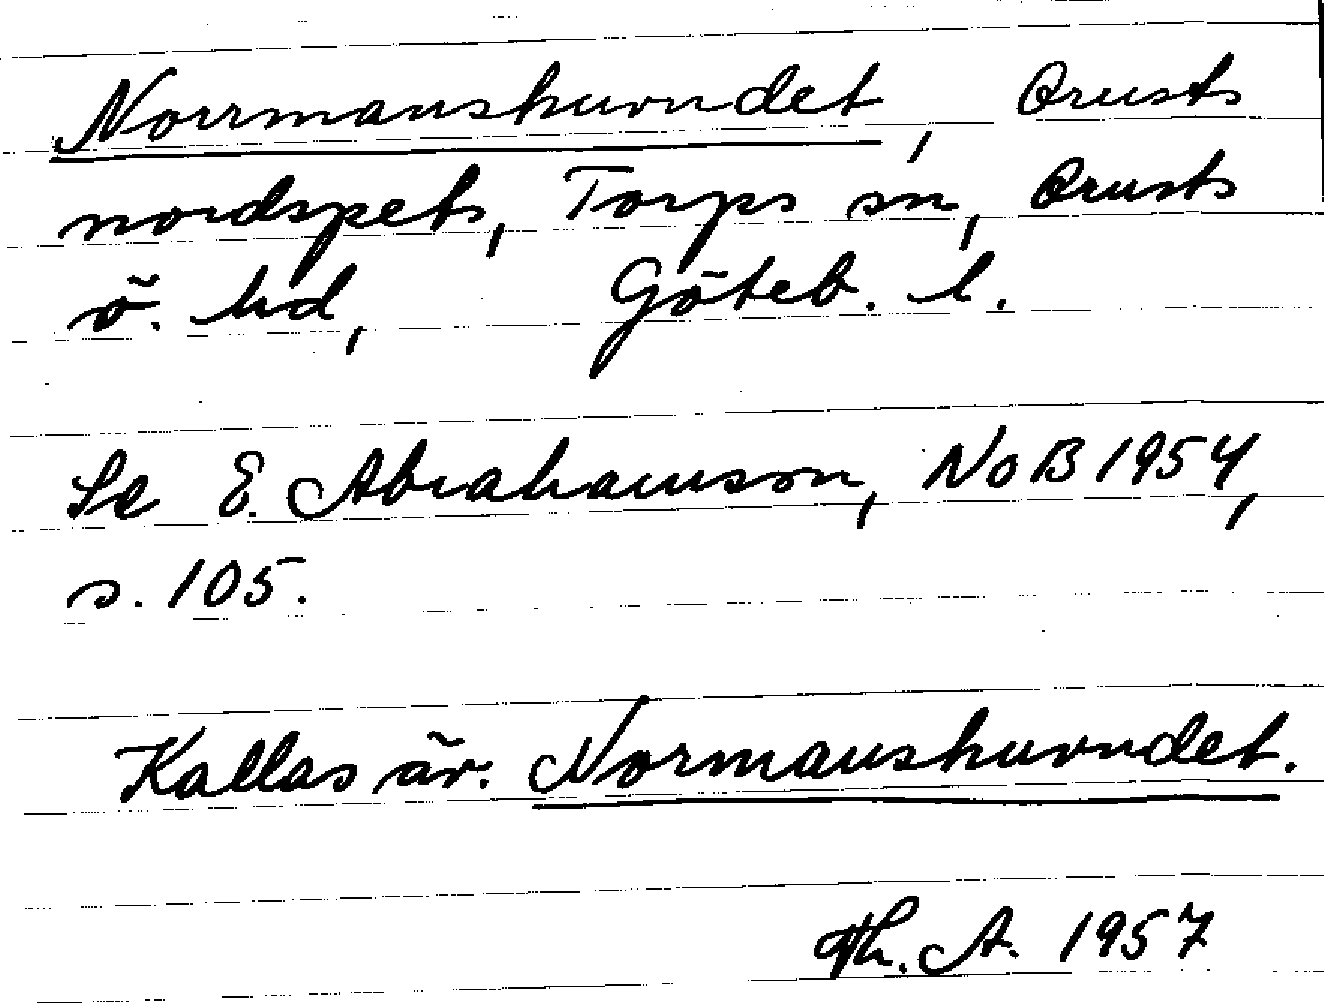 Norrmanshuvudet, Orusts
nordspets, Torps sn, Orusts
ö. hd, Göteb. l.
Se E. Abrahamson, NoB 1954,
s. 105.
Kallas äv. Normanshuvudet.
Th. A. 1957